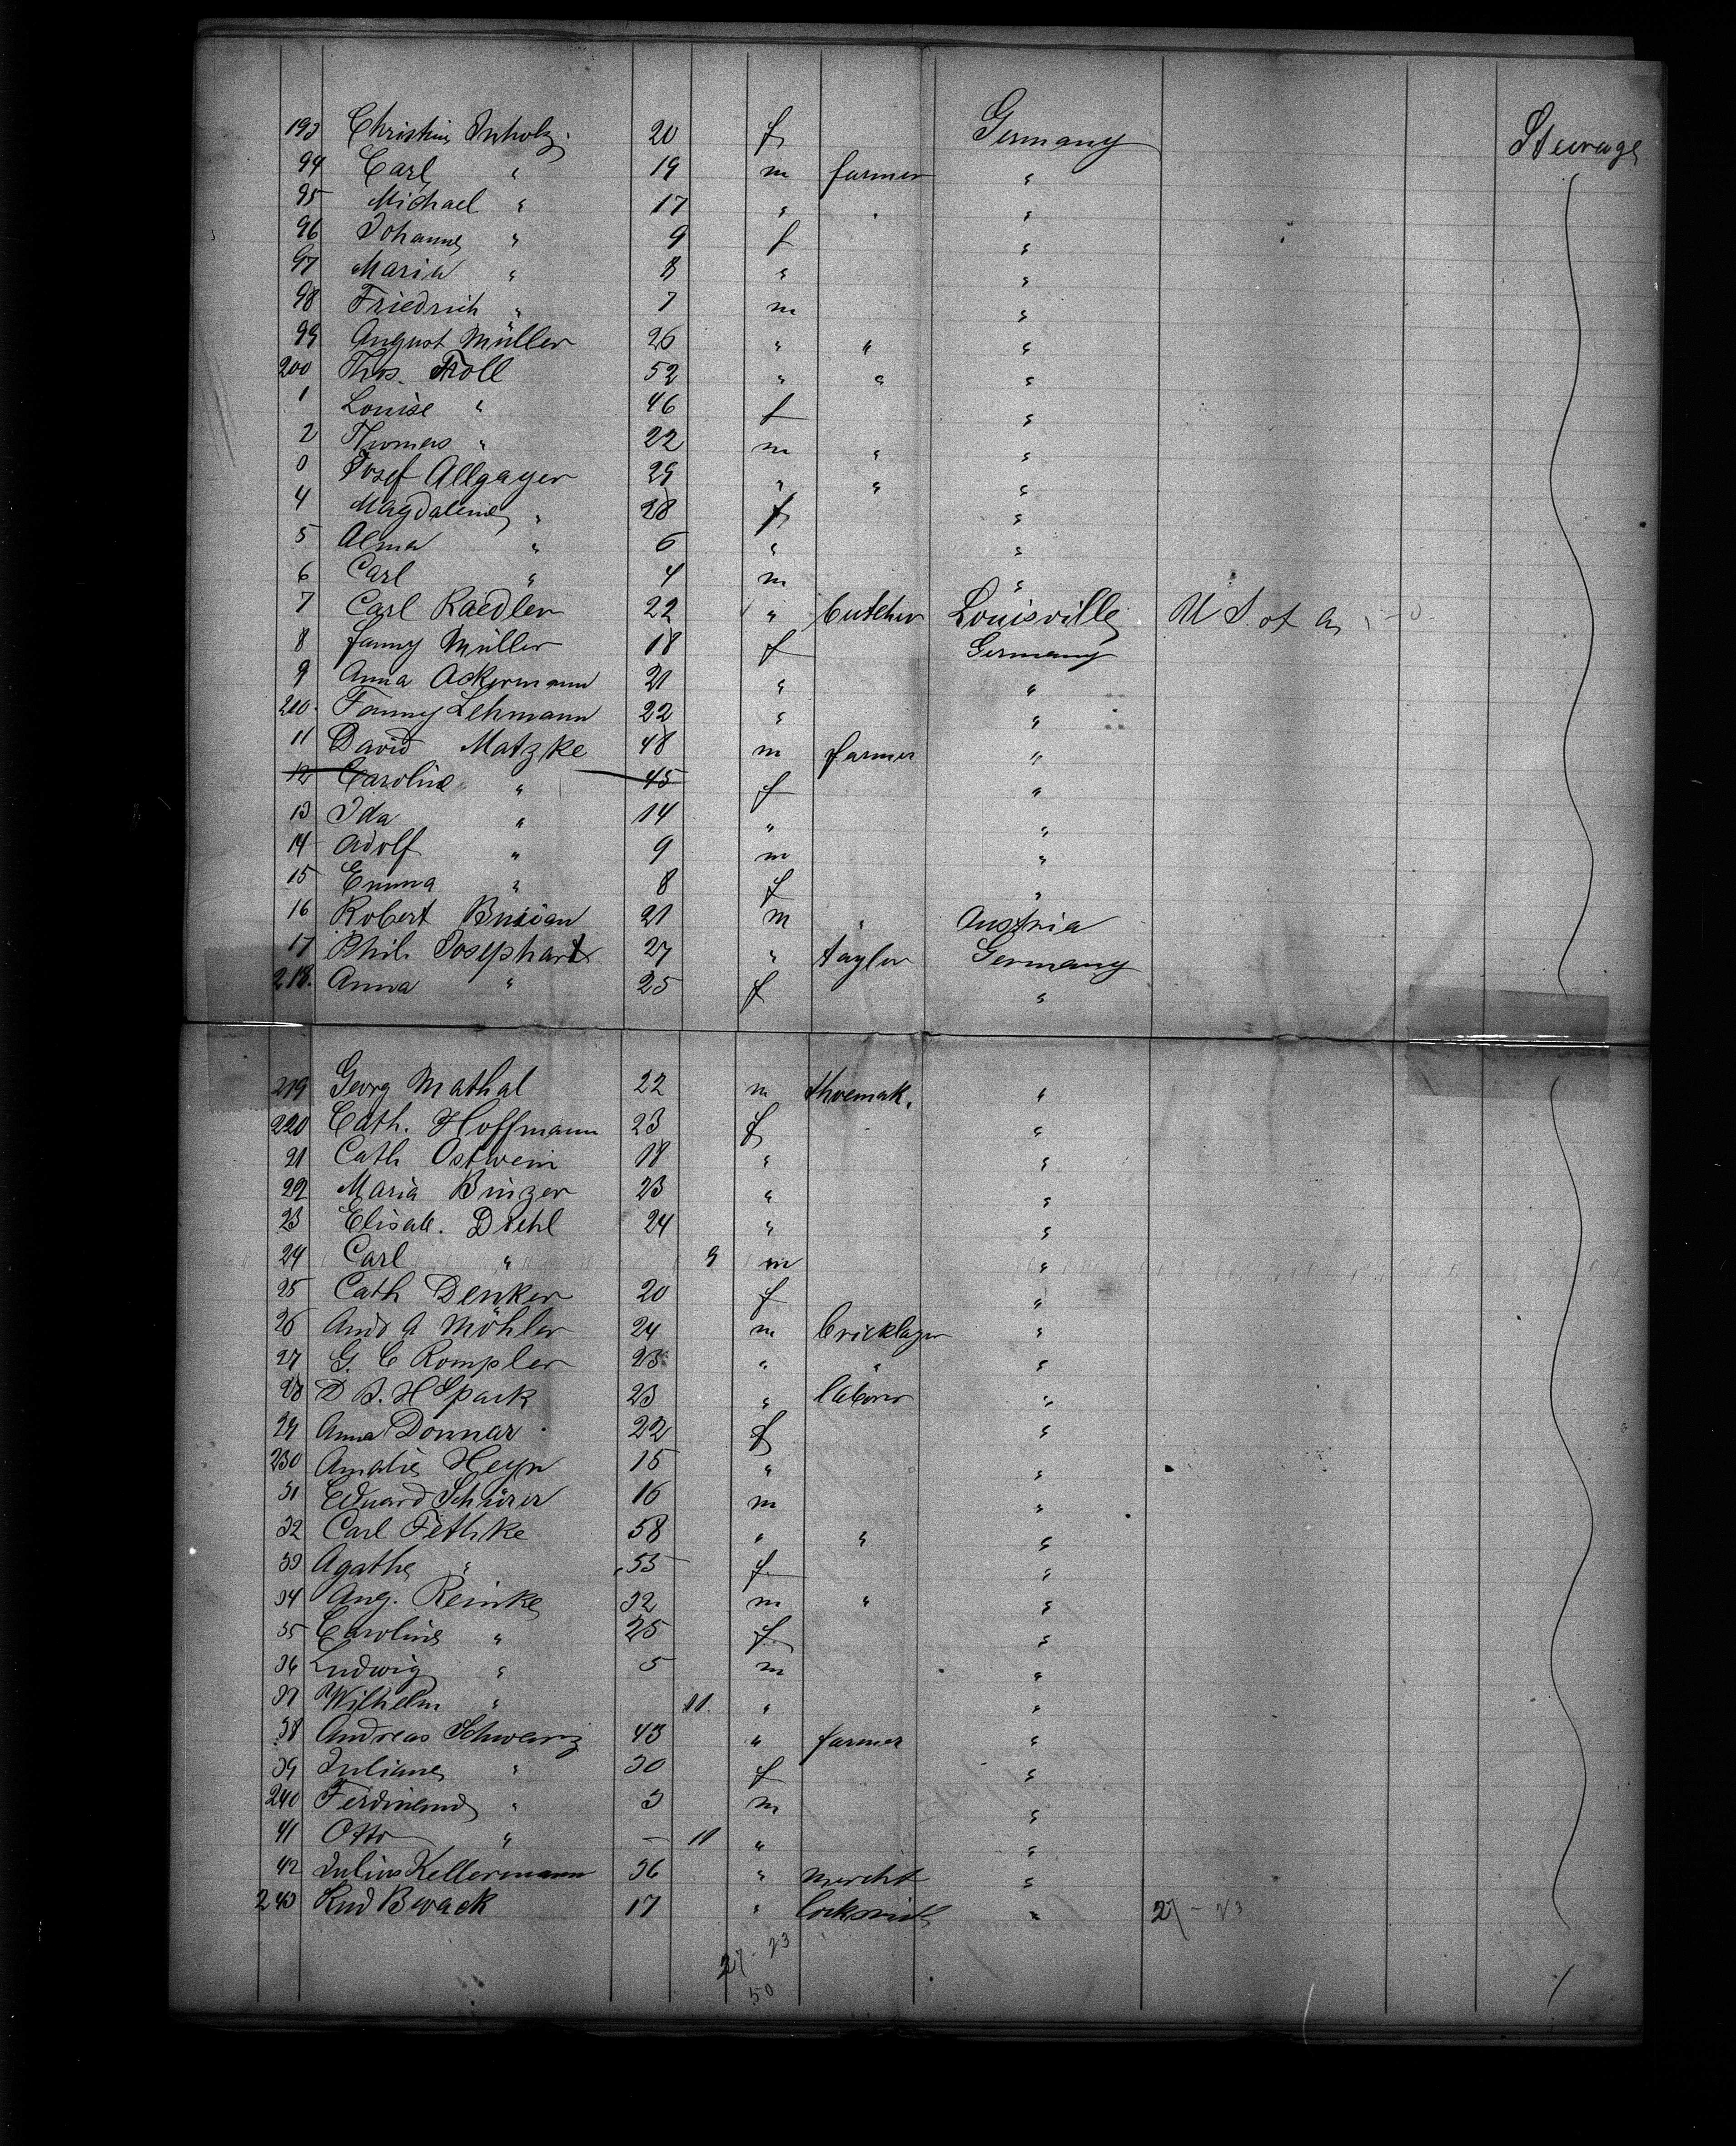 193 Christine Inholz 20 f Germany Steerage
94 Carl " 19 m farmer "
95 Michael " 17 " " "
96 Johanne " 9 f "
97 Maria " 8 " "
98 Friedrich " 7 m "
99 August Müller 26 " " "
200 Ths. Troll 52 " " "
1 Louise " 46 f "
2 Thomas " 22 m " "
3 Josef Allgayer 29 " " "
4 Magdalene " 28 f "
5 Alma " 6 " "
6 Carl " 4 m "
7 Carl Raedler 22 " butcher Louisville U S. of A
8 Fanny Müller 18 f Germany
9 Anna Ackermann 21 " "
210. Fanny Lehmann 22 " "
11 David Matzke 48 m farmer "
12 Caroline " 45 f "
13 Ida " 14 " "
14 Adolf " 9 m "
15 Emma " 8 f "
16 Robert 21 m " Austria
17 Phil. Josephart 27 " taylor Germany
218. Anna " 25 f "
219 Georg Mathal 22 m shoemak. "
220 Cath. Hoffmann 23 f "
21 Cath Ostwein 18 " "
22 Maria Binzer 23 " "
23 Elisab. Diehl 24 " "
24 Carl " 9 m "
25 Cath Denker 20 f "
26 And A Möhler 24 m bricklayer "
27 G. C Rompler 23 " " "
28 D J. H Spark 23 " laborer "
29 Anna Donnar 22 f "
230 Amalie Heyn 15 " "
31 Eduard Schürer 16 m "
32 Carl Fethke 58 " " "
33 Agathe " 55 f "
34 Aug. Reinke 32 m " "
35 Caroline " 25 f "
36 Ludwig " 5 m "
37 Wilhelm " 11. " "
38 Andreas Schwarz 43 " farmer "
39 Juliane " 30 f "
240 Ferdinand " 3 m "
41 Otto " — 11 " "
42 Julius Kellermann 36 " mercht "
243 Rud Brack 17 " locksmith " 27 - 23
27 - 23
50